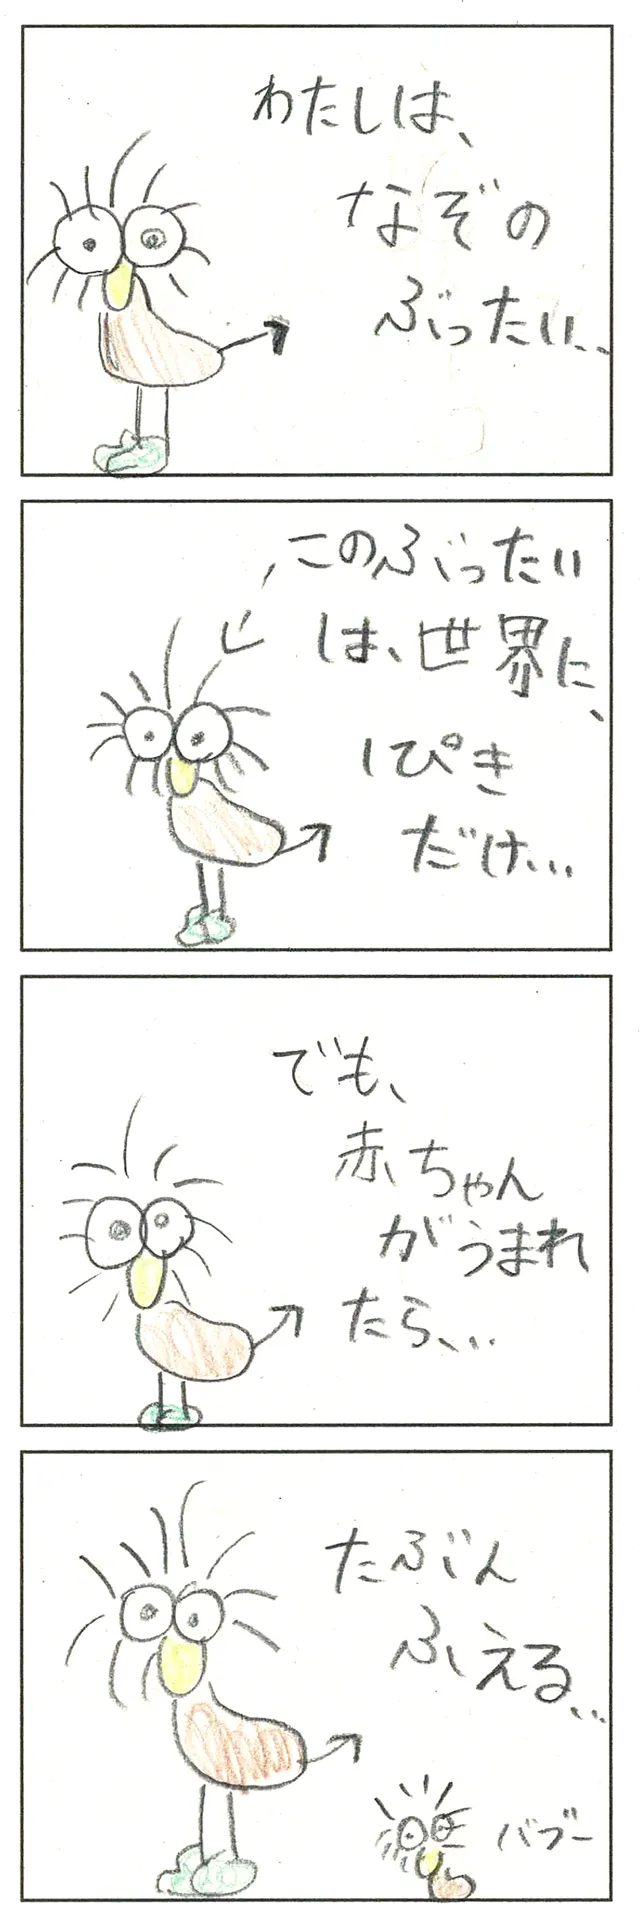 わたしは、
なぞの
ぶったい、、
このぶったい
は、世界に、
1ぴき
だけ、、、
でも、
赤ちゃん
がうまれ
たら、、、
たぶん
ふえる、、
バブー